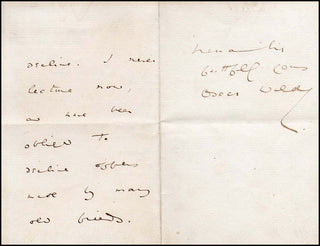 decline. I never
lecture now,
and have been
obliged to
decline offers
made by many
old friends.
I remain his
faithfully yours
Oscar Wilde